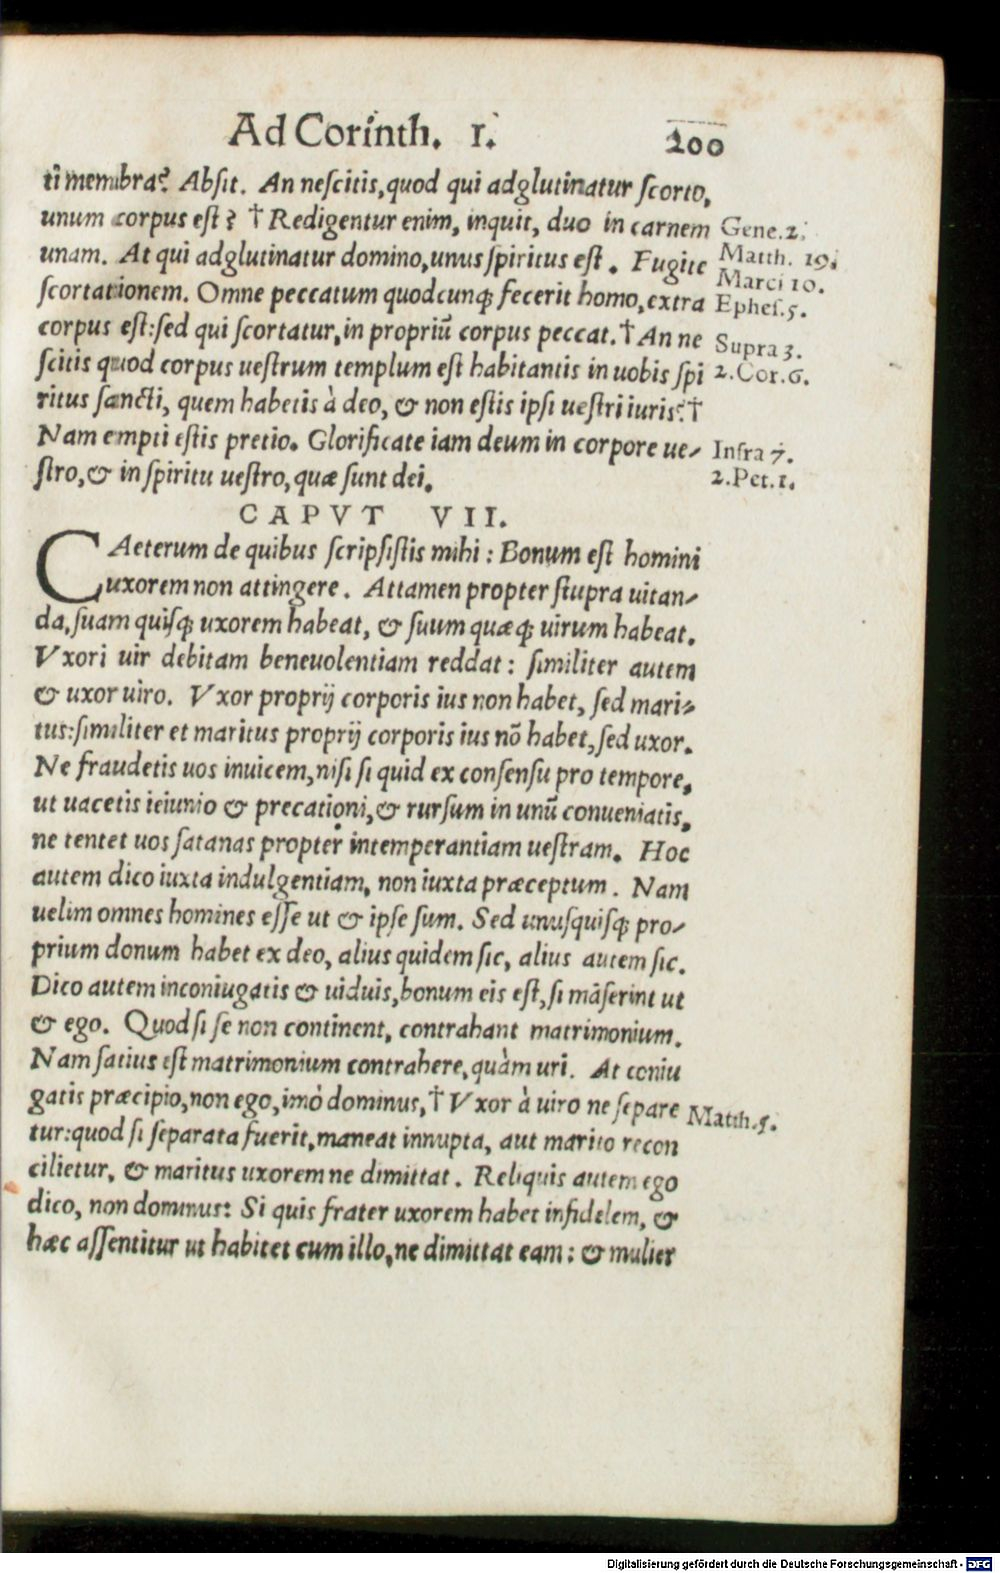 Ad Corinth. 1. 200
ti membra? Absit. An nescitis, quod qui adglutinatur scorto,
unum corpus est? † Redigentur enim, inquit, duo in carnem Gene.2.
unam. At qui adglutinatur domino, unus spiritus est. Fugite Matth. 19.
Marci 10.
scortationem. Omne peccatum quodcunq; fecerit homo, extra Ephes.5.
corpus est: sed qui scortatur, in propriū corpus peccat. † An ne Supra 3.
scitis quod corpus uestrum templum est habitantis in uobis spi 2.Cor.6.
ritus sancti, quem habetis à deo, & non estis ipsi uestri iuris? †
Nam empti estis pretio. Glorificate iam deum in corpore ue- Infra 7.
stro, & in spiritu uestro, quæ sunt dei. 2.Pet.1.
CAPVT VII.
CAeterum de quibus scripsistis mihi: Bonum est homini
uxorem non attingere. Attamen propter stupra uitan-
da, suam quisq; uxorem habeat, & suum quæq; uirum habeat.
Vxori uir debitam beneuolentiam reddat: similiter autem
& uxor uiro. Vxor proprij corporis ius non habet, sed mari-
tus: similiter et maritus proprij corporis ius nō habet, sed uxor.
Ne fraudetis uos inuicem, nisi si quid ex consensu pro tempore,
ut uacetis ieiunio & precationi, & rursum in unū conueniatis,
ne tentet uos satanas propter intemperantiam uestram. Hoc
autem dico iuxta indulgentiam, non iuxta præceptum. Nam
uelim omnes homines esse ut & ipse sum. Sed unusquisq; pro-
prium donum habet ex deo, alius quidem sic, alius autem sic.
Dico autem inconiugatis & uiduis, bonum eis est, si māserint ut
& ego. Quod si se non continent, contrahant matrimonium.
Nam satius est matrimonium contrahere, quàm uri. At coniu
gatis præcipio, non ego, imò dominus, † Vxor à uiro ne separe Matth.5.
tur: quod si separata fuerit, maneat innupta, aut marito recon
cilietur, & maritus uxorem ne dimittat. Reliquis autem ego
dico, non dominus: Si quis frater uxorem habet infidelem, &
hæc assentitur ut habitet cum illo, ne dimittat eam: & mulier
Digitalisierung gefördert durch die Deutsche Forschungsgemeinschaft - DFG